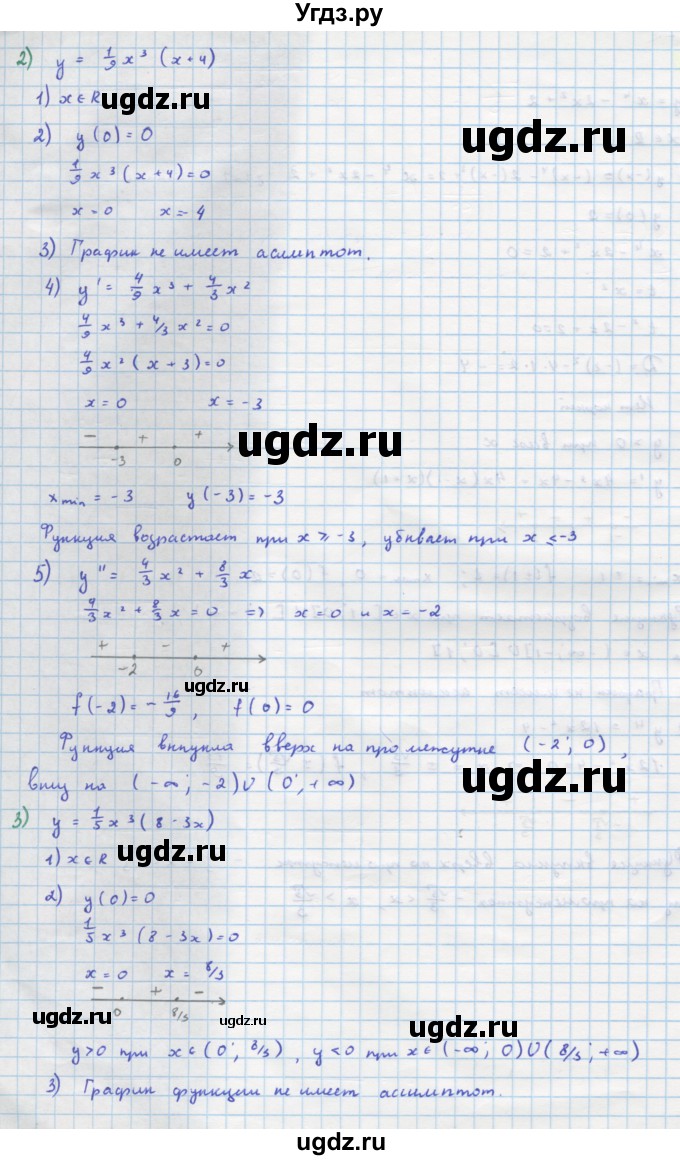 Угдз.ру
2) y = 1/9 x³ (x+4)
1) x ∈ R
ugdz.ru
ugdz.ru
2) y(0) = 0
1/9 x³ (x+4) = 0
x = 0 x = -4
3) График не имеет асимптот.
4) y' = 4/9 x³ + 4/3 x²
4/9 x³ + 4/3 x² = 0
4/9 x² (x + 3) = 0
x = 0 x = -3
- + +
-3 0
ugdz.ru
x min = -3 y(-3) = -3
Функция возрастает при x ≥ -3, убывает при x ≤ -3
5) y'' = 4/3 x² + 8/3 x
4/3 x² + 8/3 x = 0 => x = 0 и x = -2
+ - +
-2 0
ugdz.ru
f(-2) = - 16/9, f(0) = 0
Функция выпукла вверх на промежутке (-2; 0),
вниз на (-∞; -2) ∪ (0; +∞)
ugdz.ru
3) y = 1/5 x³ (8 - 3x)
1) x ∈ R
ugdz.ru
2) y(0) = 0
1/5 x³ (8 - 3x) = 0
x = 0 x = 8/3
- + -
0 8/3
ugdz.ru
ugdz.ru
ugdz.ru
y > 0 при x ∈ (0; 8/3), y < 0 при x ∈ (-∞; 0) ∪ (8/3; +∞)
3) График функции не имеет ассимптот.
ugdz.ru